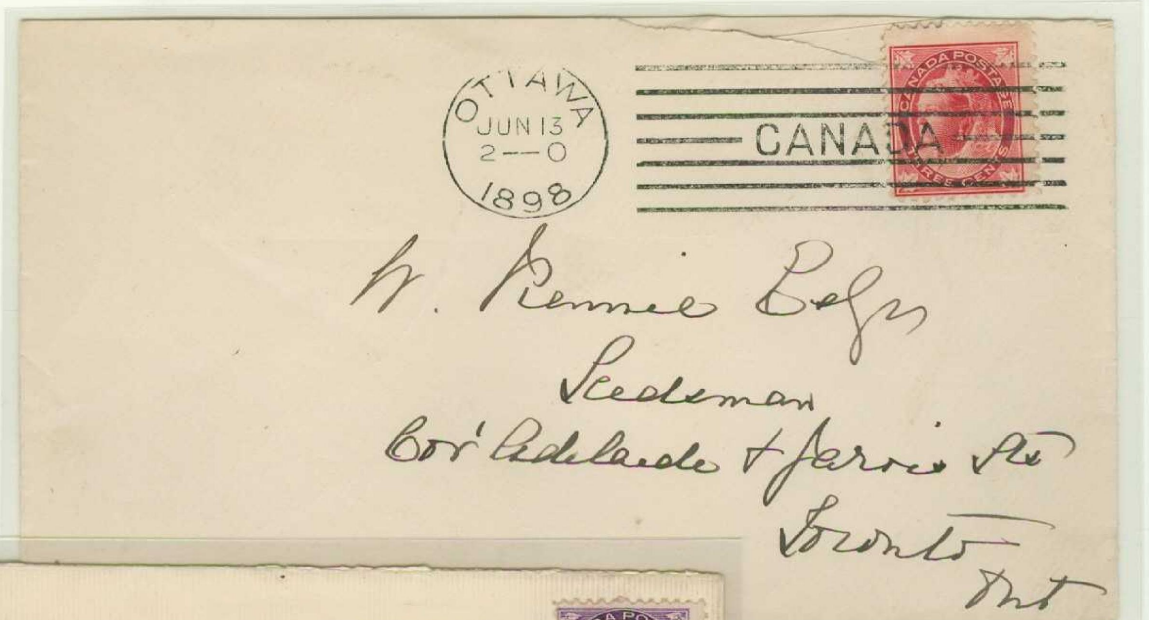 OTTAWA
JUN 13
2—0
1898
CANADA
CANADA POSTAGE
THREE CENTS
W. Rennie Esqr
Seedsman
Cor' Adelaide & Jarvis Sts
Toronto
Ont
A PO